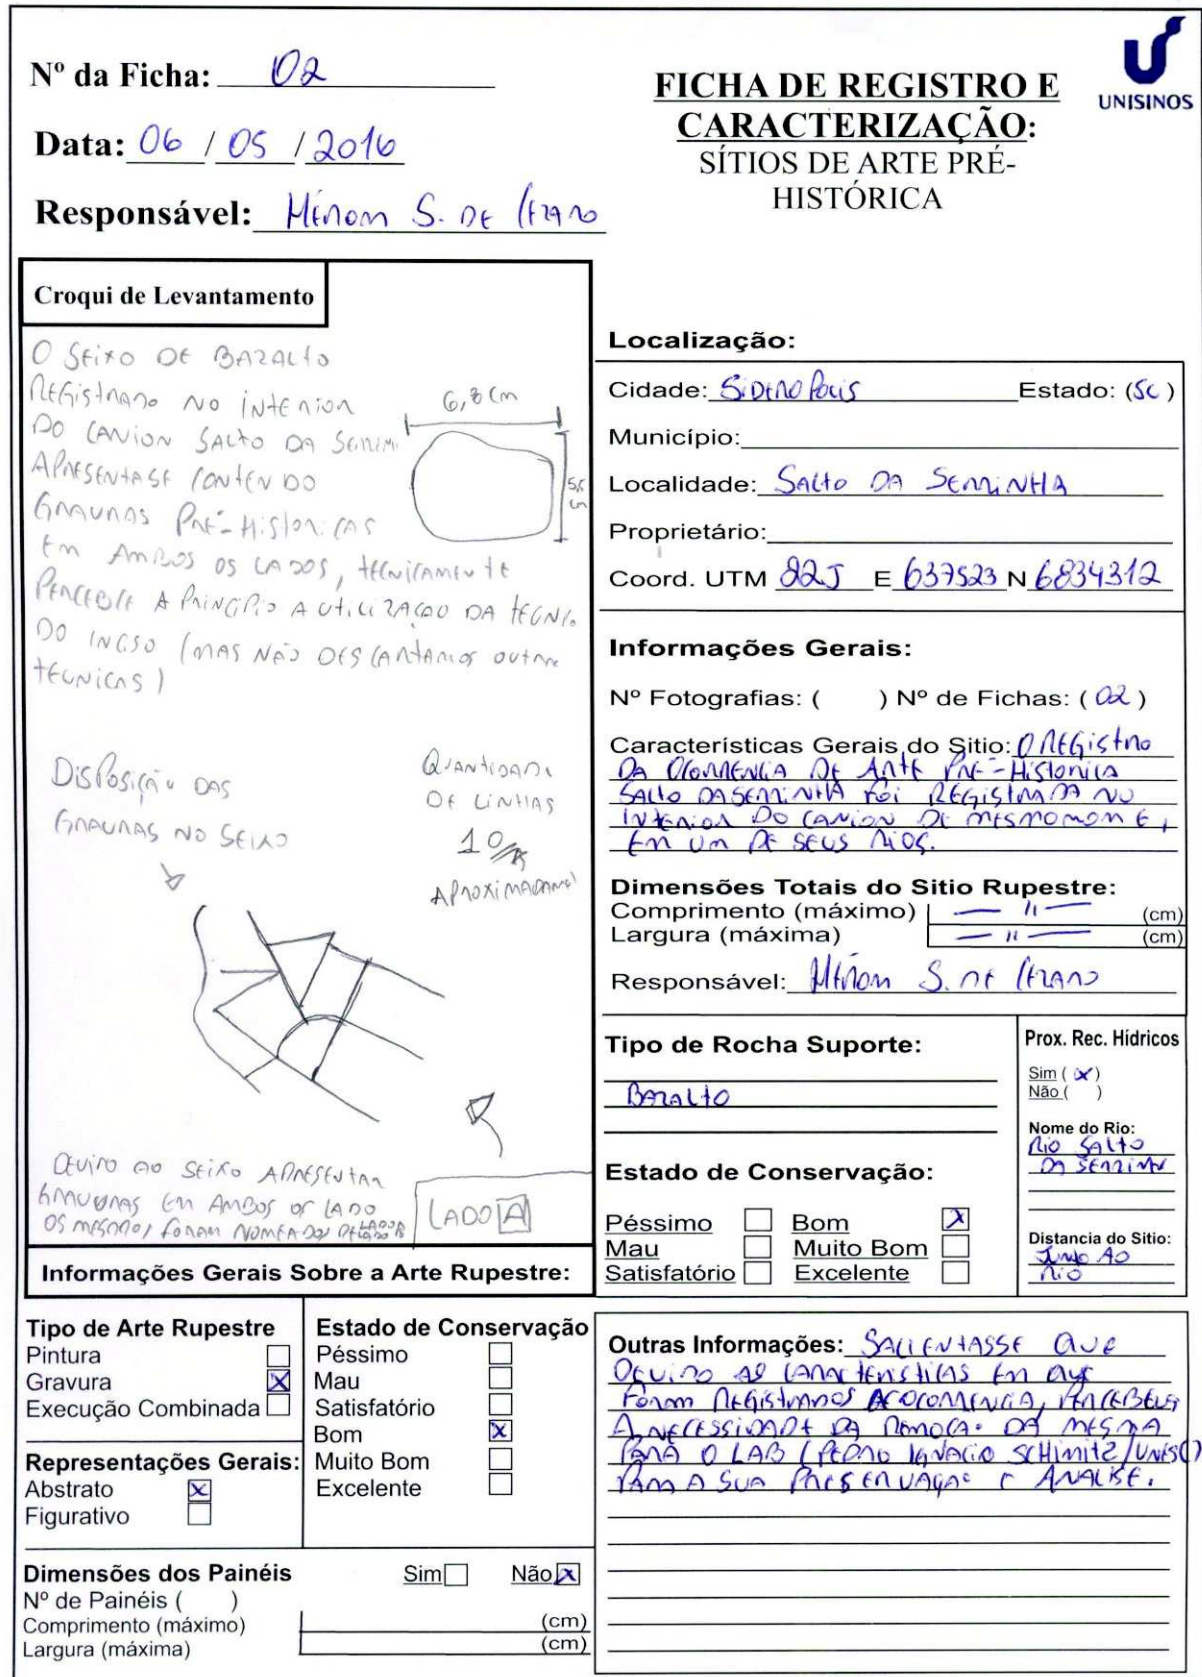 Nº da Ficha: 02
Data: 06 / 05 / 2016
Responsável: S. DE
FICHA DE REGISTRO E
CARACTERIZAÇÃO:
SÍTIOS DE ARTE PRÉ-
HISTÓRICA
UNISINOS
Croqui de Levantamento
O SEIXO DE BAZALTO
REGISTRADO NO INTERIOR
DO CANION SALTO DA SERRIN
APRESENTASE CONTENDO
GRAVURAS PRÉ-HISTORICAS
EM AMBOS OS LADOS, TECNICAMENTE
PERCEBESE A PRINCIPIO A UTILIZAÇAO DA TECNI
DO INCISO (MAS NÃO DESCARTAMOS OUTRA
TECNICAS)
6,8 cm
5,5 cm
DISPOSIÇÃO DAS
GRAVURAS NO SEIXO
QUANTIDADE
DE LINHAS
10
APROXIMADAME
DEVIDO AO SEIXO APRESENTAR
GRAVURAS EM AMBOS OS LADO
OS MESMOS FORAM NOMEADOS
LADO A
Localização:
Cidade: SIDEROPOLIS Estado: (SC)
Município:
Localidade: SALTO DA SERRINHA
Proprietário:
Coord. UTM 22J E 637523 N 6834312
Informações Gerais:
Nº Fotografias: ( ) Nº de Fichas: (02)
Características Gerais do Sitio: O REGISTRO
DA OCORRENCIA DE ARTE PRÉ-HISTORICA
SALTO DA SERRINHA FOI REGISTRADA NO
INTERIOR DO CANION DE MESMO NOME,
EM UM DE SEUS RIOS.
Dimensões Totais do Sitio Rupestre:
Comprimento (máximo) — 11 — (cm)
Largura (máxima) — 11 — (cm)
Responsável: S. DE
Tipo de Rocha Suporte:
BAZALTO
Estado de Conservação:
Péssimo Bom X
Mau Muito Bom
Satisfatório Excelente
Prox. Rec. Hídricos
Sim (X)
Não ( )
Nome do Rio:
RIO SALTO
DA SERRINHA
Distancia do Sitio:
JUNTO AO
RIO
Informações Gerais Sobre a Arte Rupestre:
Tipo de Arte Rupestre
Pintura
Gravura X
Execução Combinada
Representações Gerais:
Abstrato X
Figurativo
Estado de Conservação
Péssimo
Mau
Satisfatório
Bom X
Muito Bom
Excelente
Dimensões dos Painéis Sim Não X
Nº de Painéis ( )
Comprimento (máximo) (cm)
Largura (máxima) (cm)
Outras Informações: SALIENTASSE QUE
DEVIDO AS CARACTERISTICAS EM QUE
FORAM REGISTRADOS A OCORRENCIA, PERCEBEU
A NECESSIDADE DA REMOÇAO DA MESMA
PARA O LAB (PEDRO IGNACIO SCHIMITZ/UNESC)
PARA A SUA PRESERVAÇAO E ANALISE.